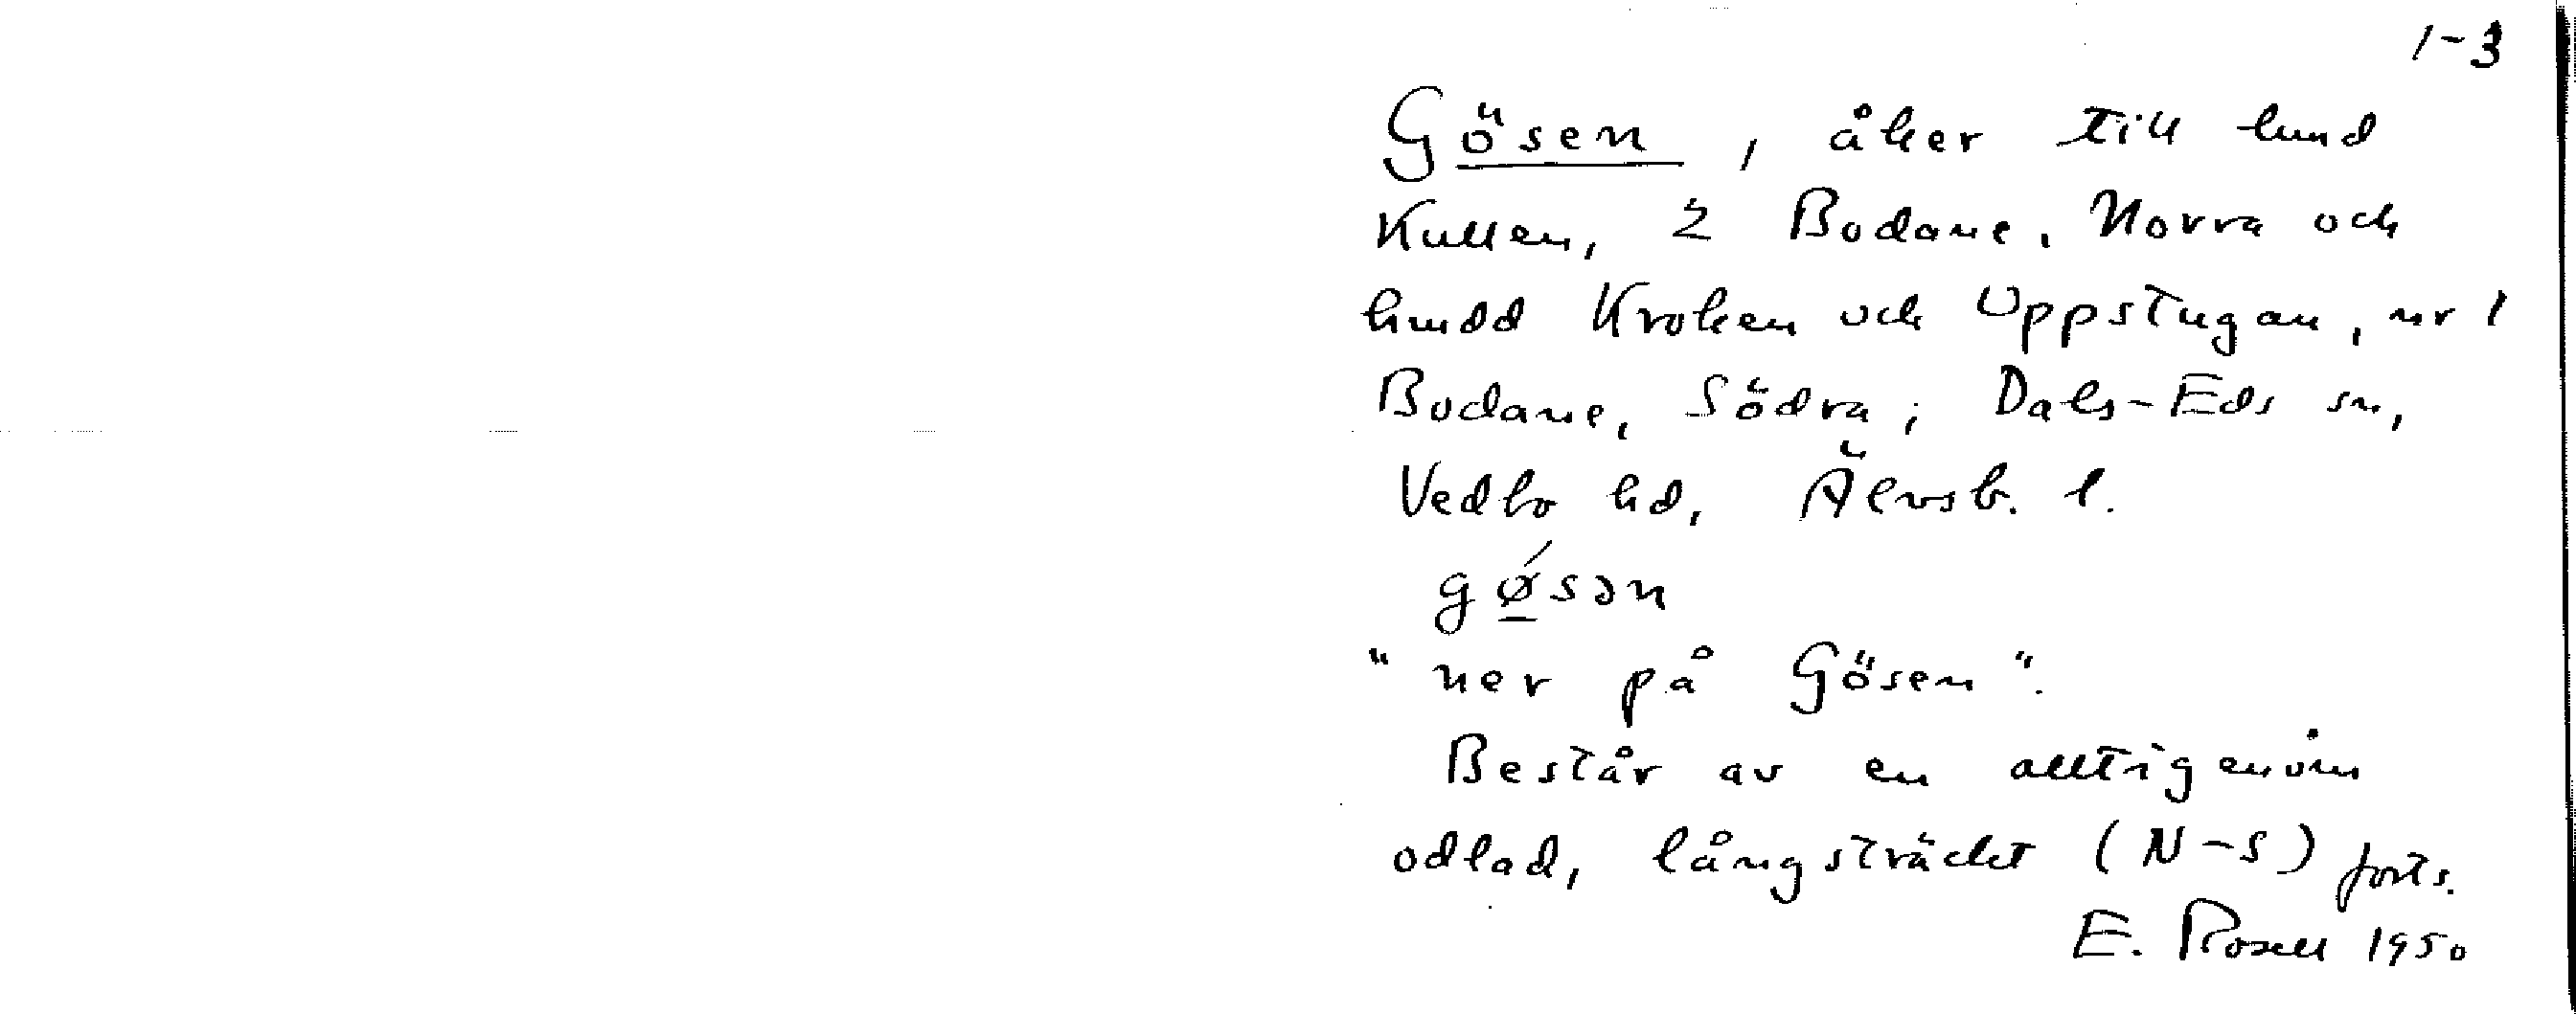 1-3
Gösen, åker till lund
Kullen, 2 Bodane, Norra och
lundd Kroken och Uppstugan, nr 1
Bodane, Södra; Dals-Eds sn,
Vedbo hd, Älvsb. l.
gǿsən
"ner på Gösen".
Består av en alltigenom
odlad, långsträckt (N-S) forts.
E. Rosell 1950